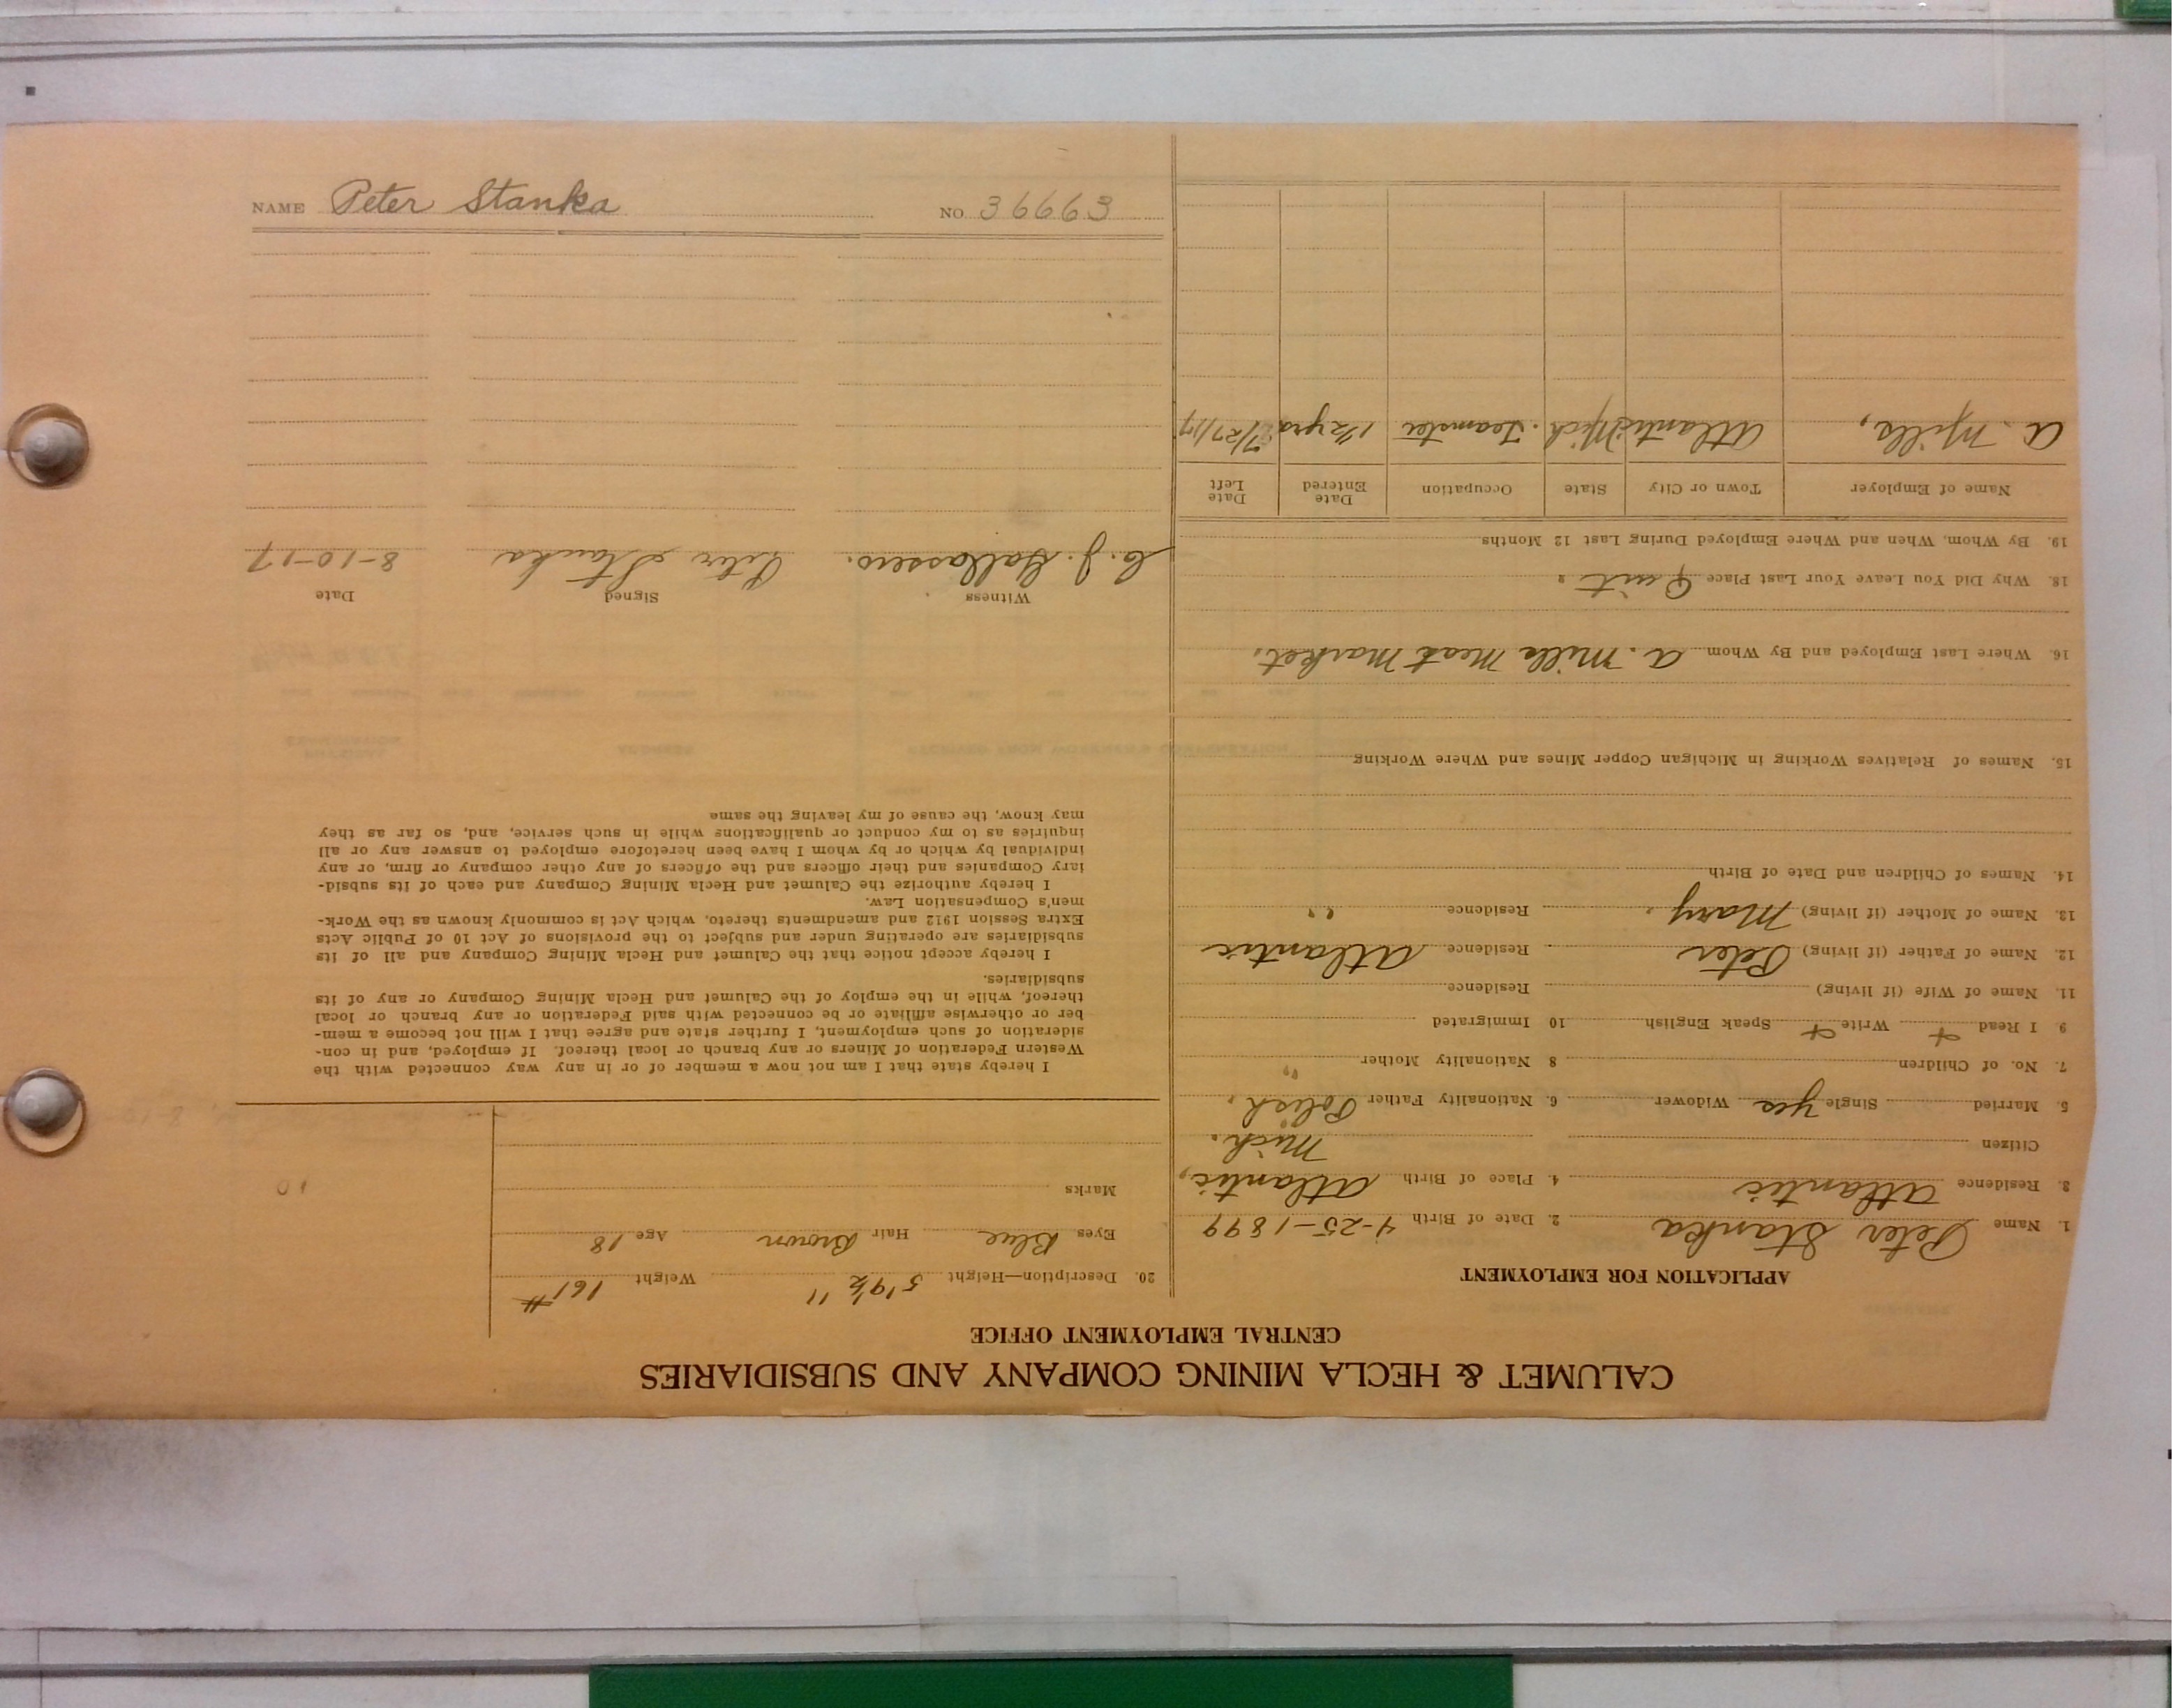 CALUMET & HECLA MINING COMPANY AND SUBSIDIARIES
CENTRAL EMPLOYMENT OFFICE
APPLICATION FOR EMPLOYMENT
1. Name Peter Stanka 2. Date of Birth 4-25-1899
3. Residence Atlantic 4. Place of Birth Atlantic,
Citizen Mich.
5. Married Single yes Widower 6. Nationality Father Polish.
7. No. of Children 8 Nationality Mother "
9. I Read Write Speak English 10 Immigrated
11. Name of Wife (if living) Residence
12. Name of Father (if living) Peter Residence Atlantic
13. Name of Mother (if living) Mary. Residence "
14. Names of Children and Date of Birth
15. Names of Relatives Working in Michigan Copper Mines and Where Working
16. Where Last Employed and By Whom A. Mills Meat Market.
18. Why Did You Leave Your Last Place Quit.
19. By Whom, When and Where Employed During Last 12 Months
Name of Employer Town or City State Occupation Date Entered Date Left
A. Mills, Atlantic Mich. Teamster 1½ yrs 7/27/17
20. Description—Height 5' 9½" Weight 161 #
Eyes Blue Hair Brown Age 18
Marks
10
I hereby state that I am not now a member of or in any way connected with the
Western Federation of Miners or any branch or local thereof. If employed, and in con-
sideration of such employment, I further state and agree that I will not become a mem-
ber or otherwise affiliate or be connected with said Federation or any branch or local
thereof, while in the employ of the Calumet and Hecla Mining Company or any of its
subsidiaries.
I hereby accept notice that the Calumet and Hecla Mining Company and all of its
subsidiaries are operating under and subject to the provisions of Act 10 of Public Acts
Extra Session 1912 and amendments thereto, which Act is commonly known as the Work-
men's Compensation Law.
I hereby authorize the Calumet and Hecla Mining Company and each of its subsid-
iary Companies and their officers and the officers of any other company or firm, or any
individual by which or by whom I have been heretofore employed to answer any or all
inquiries as to my conduct or qualifications while in such service, and, so far as they
may know, the cause of my leaving the same
Witness Signed Date
C. J. Gallassero. Peter Stanka 8-10-17
NAME Peter Stanka NO. 36663